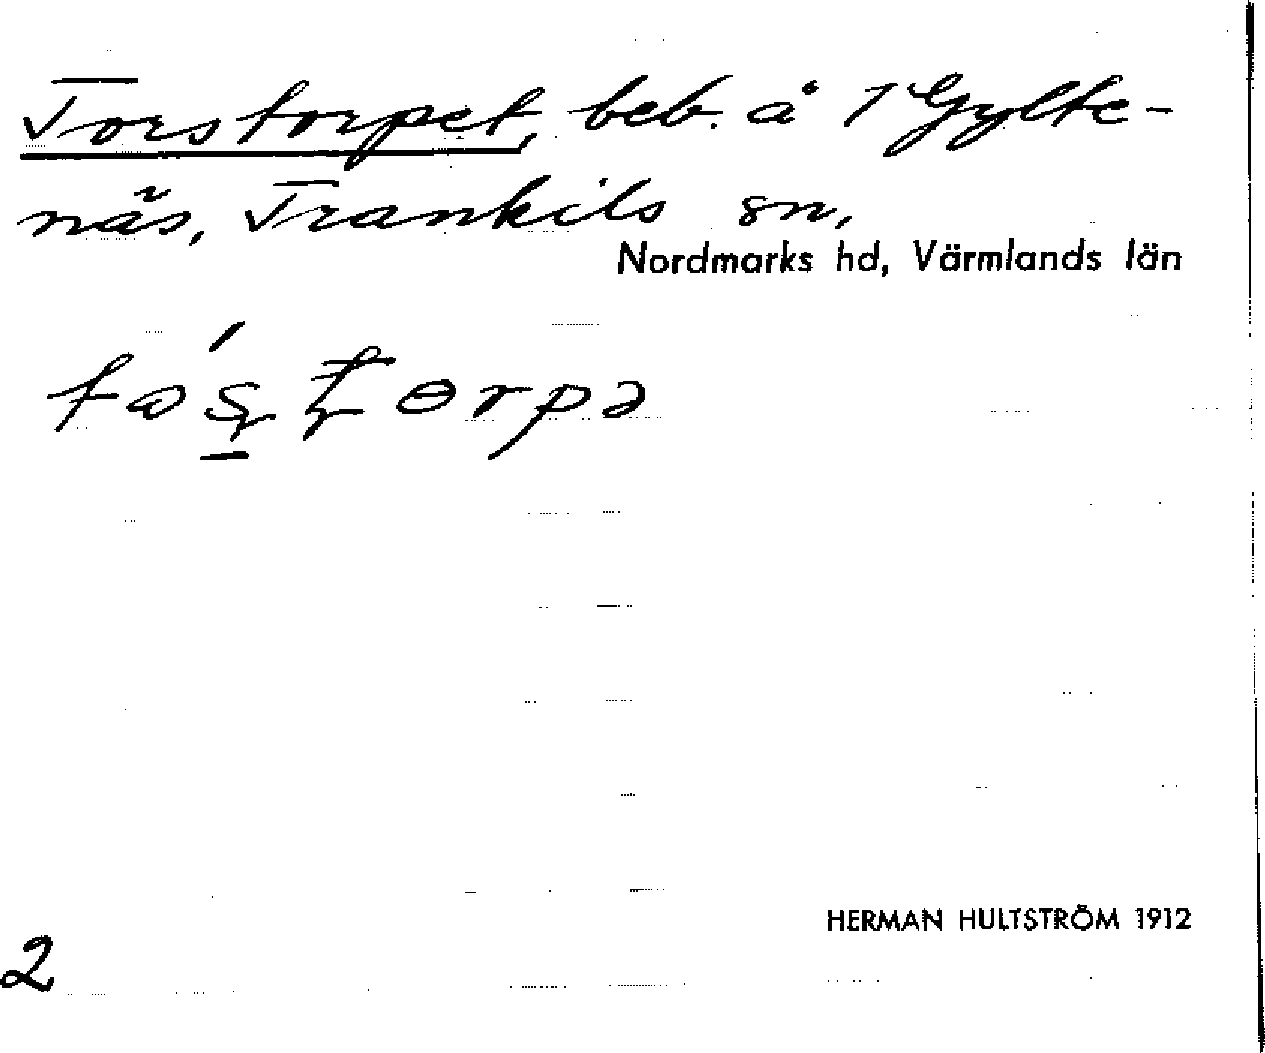 Torstorpet, beb. å 1 Gylte-
näs, Trankils sn,
Nordmarks hd, Värmlands län
HERMAN HULTSTRÖM 1912
2